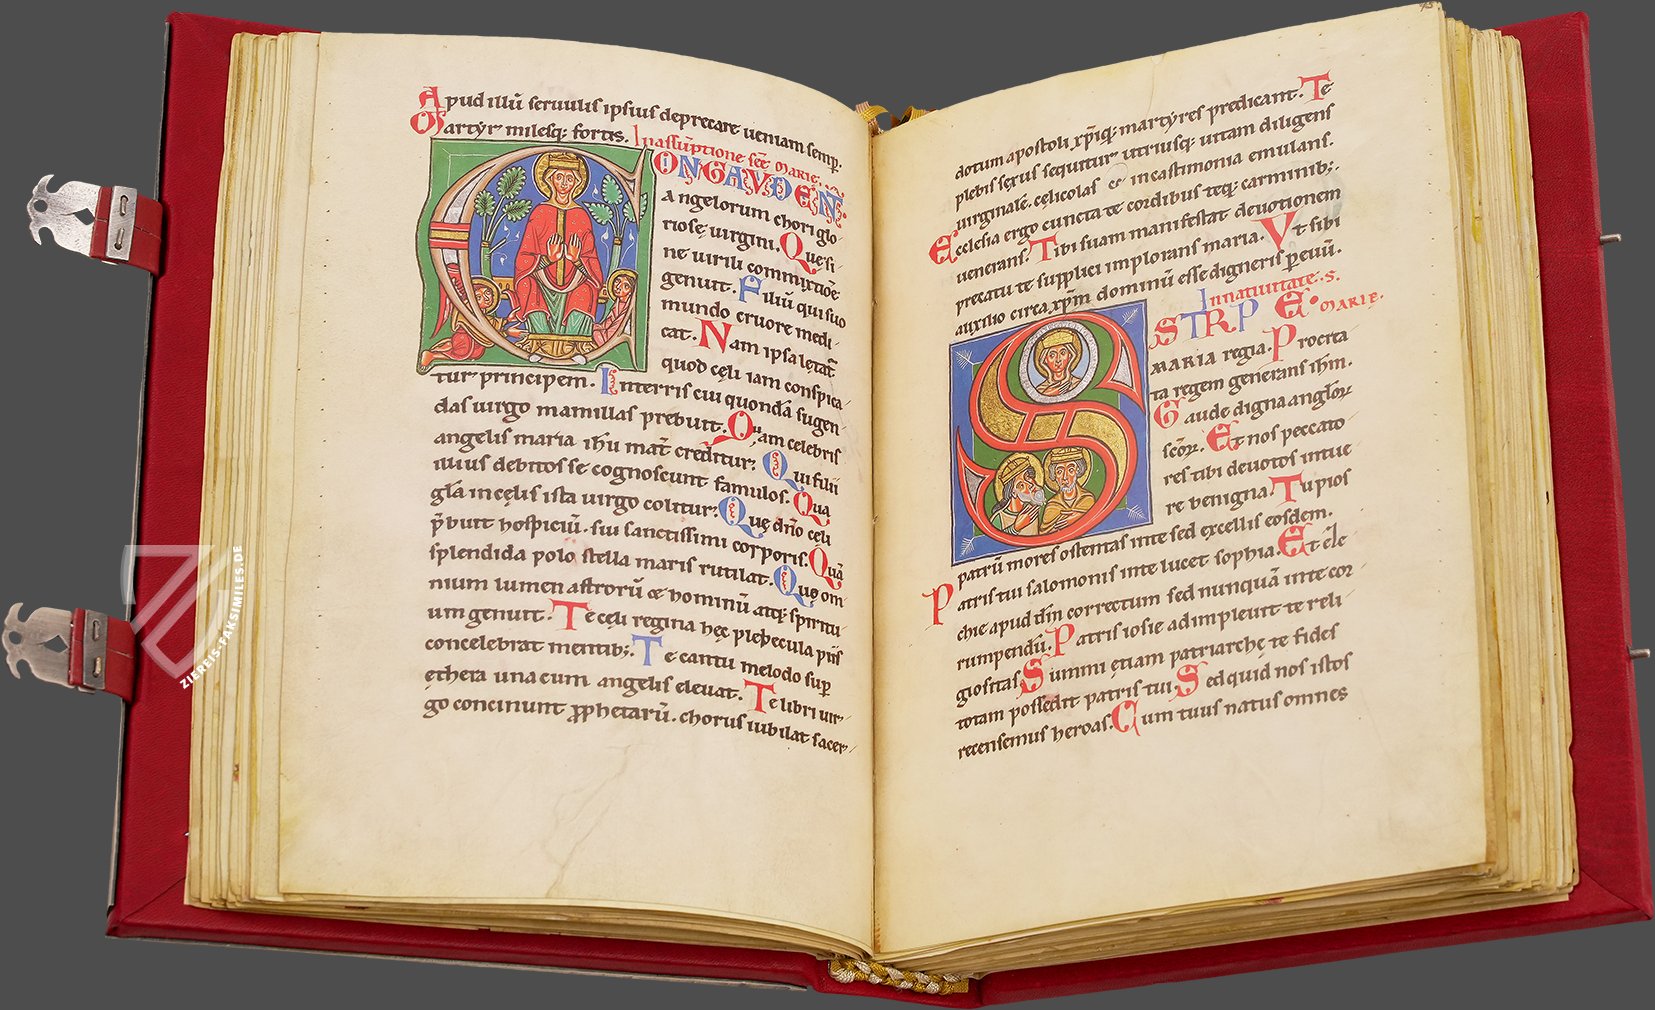 Apud illū seruulis ipsius deprecare ueniam semp.
Martyr milesq; fortis. In assūptione sce Marie.
CONGAVDENT
angelorum chori glo-
riose uirgini. Que si-
ne uirili commixtiōe
genuit. Filiū qui suo
mundo cruore medi-
cat. Nam ipsa letat̄
quod celi iam conspica-
tur principem. In terris cui quondā sugen-
das uirgo mamillas prebuit. Quam celebris
angelis maria ihu mat̄ creditur; Qui filii
illius debitos se cognoscunt famulos. Qua
gl̄a in celis ista uirgo colitur; Que dn̄o celi
p̄buit hospiciū sui sanctissimi corporis. Quā
splendida polo stella maris rutilat. Que om
nium lumen astrorū & hominū atq; spiritu-
um genuit. Te celi regina hec plebecula piis
concelebrat mentib;. Te cantu melodo sup̄
ethera una cum angelis eleuat. Te libri uir-
go concinunt p̄phetarū. chorus iubilat sacer-
dotum apostoli xp̄iq; martyres predicant. Te
plebis sexus sequitur utriusq; uitam diligens
uirginale. celicolas & in castimonia emulans.
Ecclesia ergo cuncta te cordibus teq; carminib;.
uenerans. Tibi suam manifestat deuotionem
precatu te supplici implorans maria. Vt sibi
auxilio circa xp̄m dominū esse digneris p̄ euū.
In natiuitate. s. Marie.
STIRPE.
MARIA regia. Procrea
ta regem generans ihm.
Gaude digna anglor̄
scōr̄. Et nos peccato
res tibi deuotos intue
re benigna. Tu pios
patrū mores ostentas in te sed excellis eosdem.
Patris tui salomonis in te lucet sophia. Et eze
chie apud dm̄ correctum sed nunquā in te cor-
rumpendū. Patris iosie adimpleuit te reli-
giositas. Summi etiam patriarche te fides
totam possedit patris tui. Sed quid nos istos
recensemus heroas. Cum tuus natus omnes
ZIEREIS-FAKSIMILES.DE